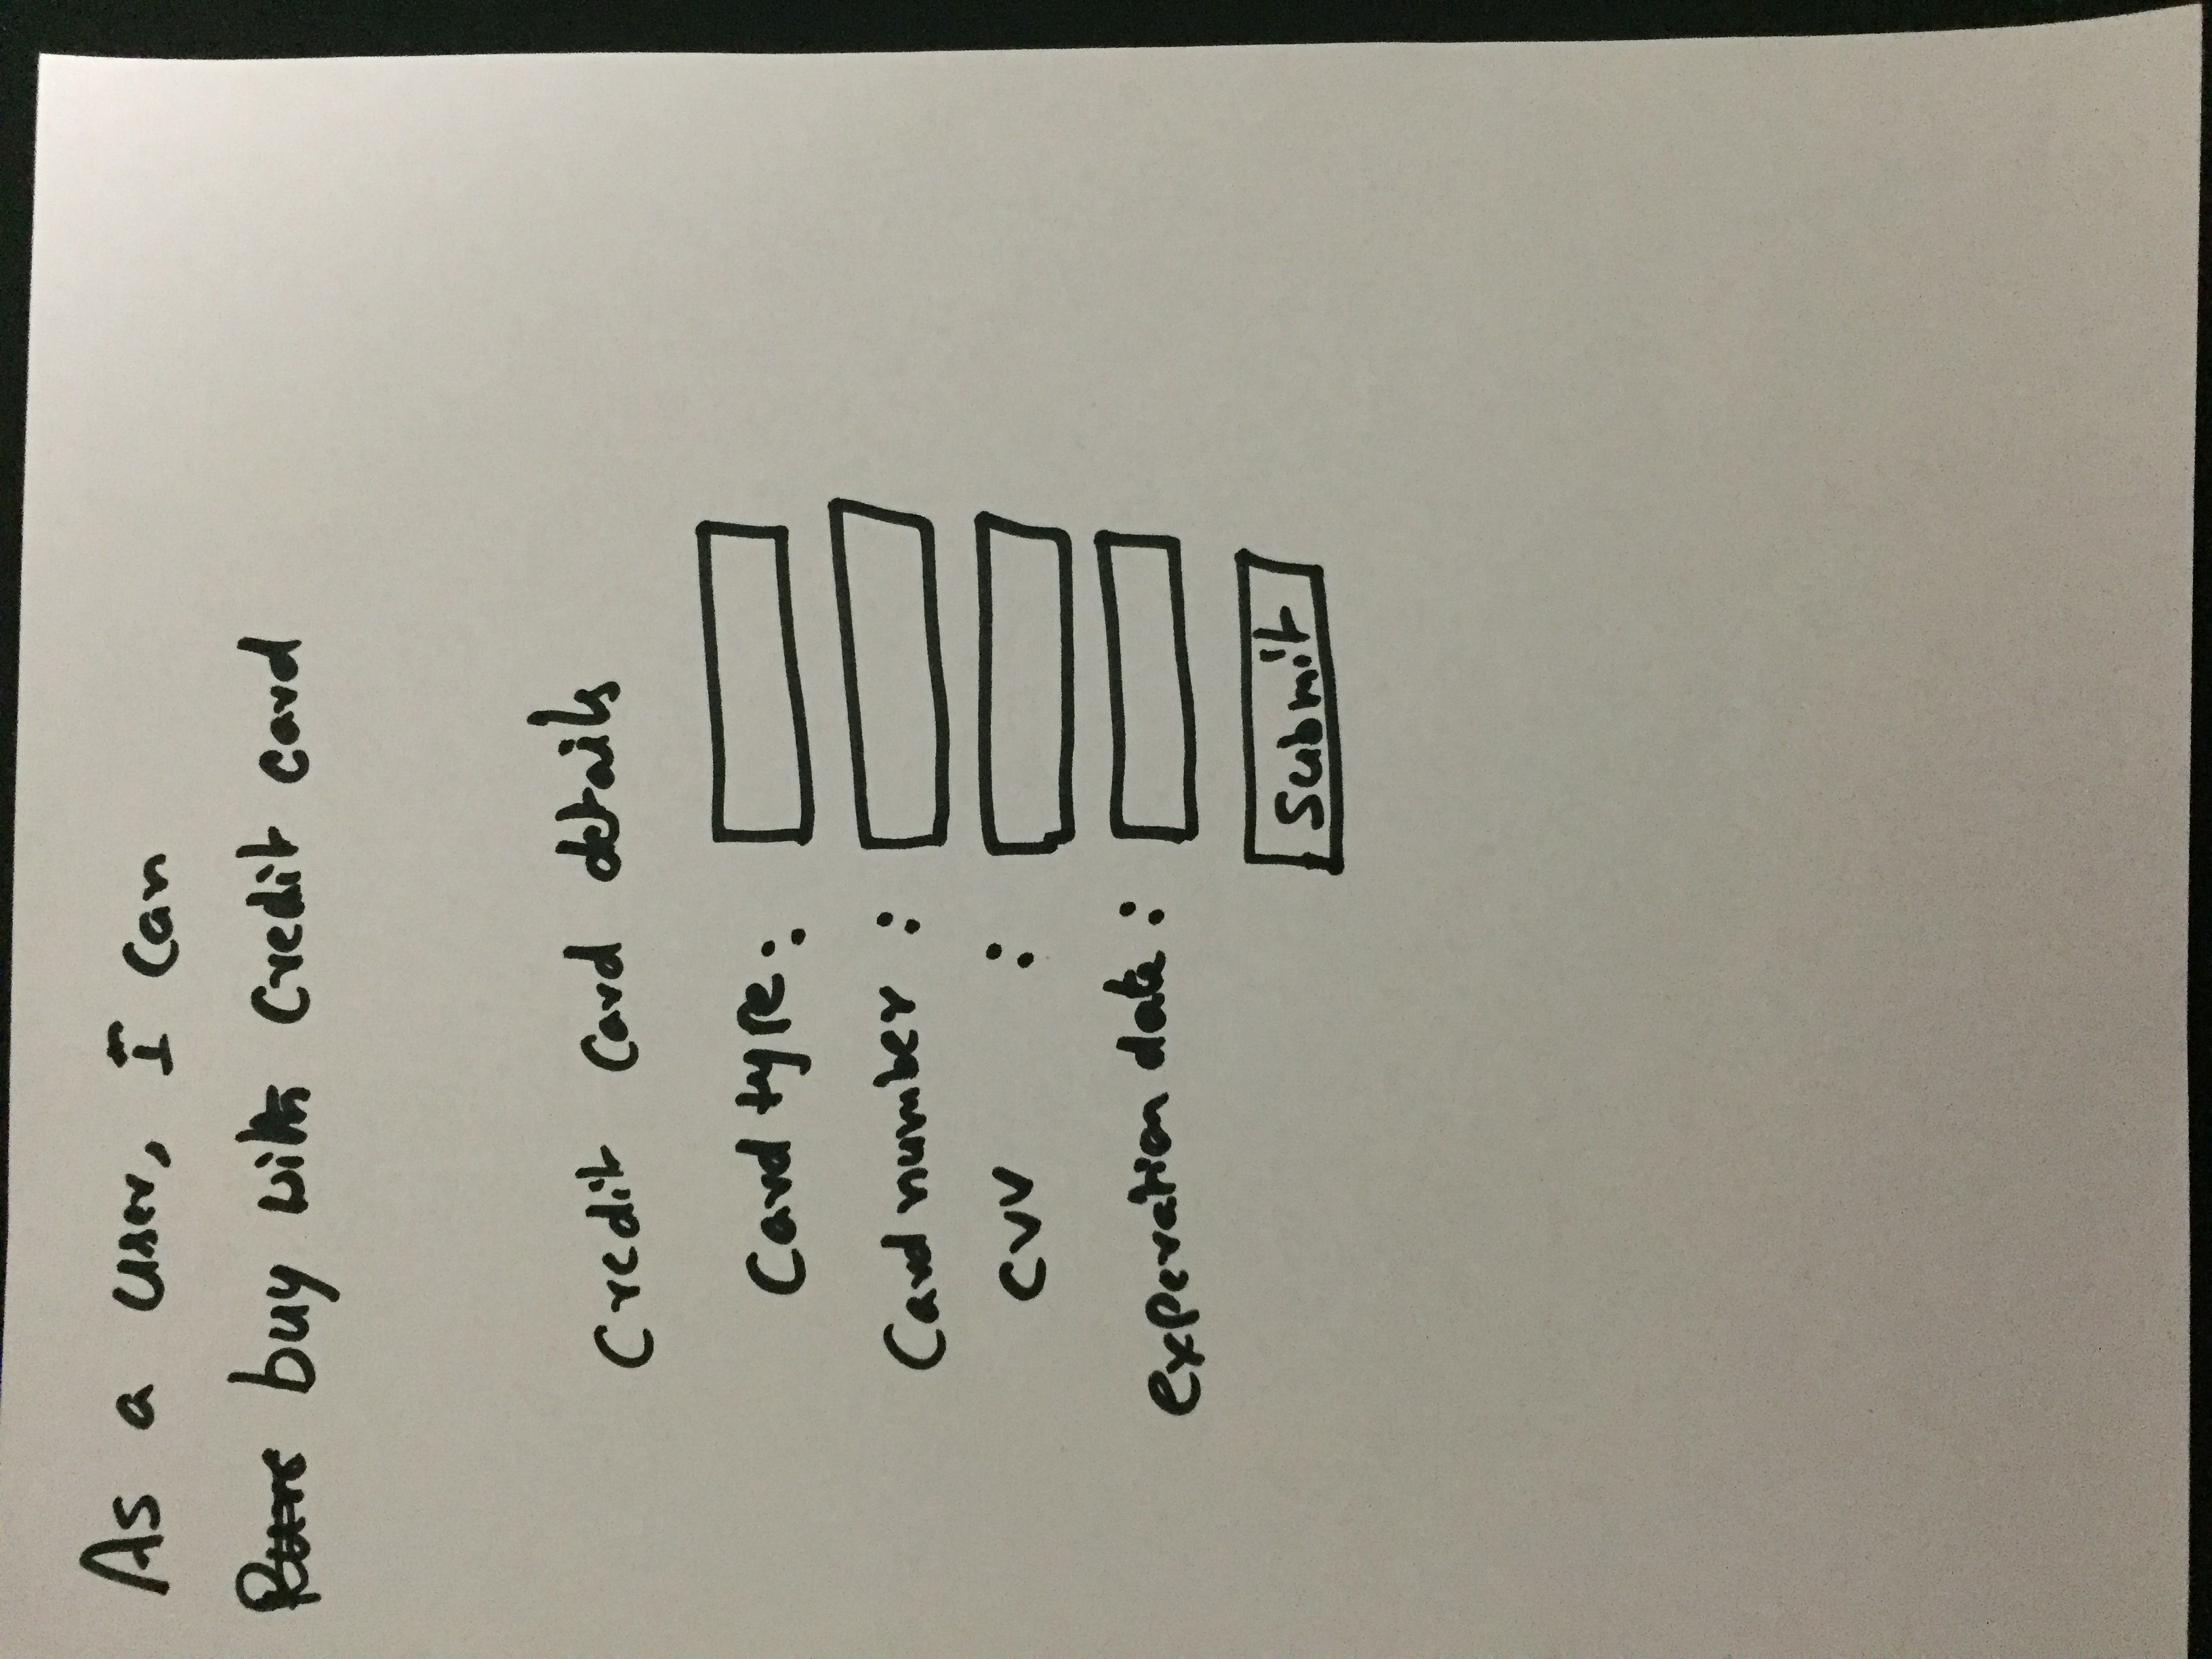 As a user, I can
buy with credit card
Credit Card details
Card type:
Card number :
CVV :
experation date :
Submit